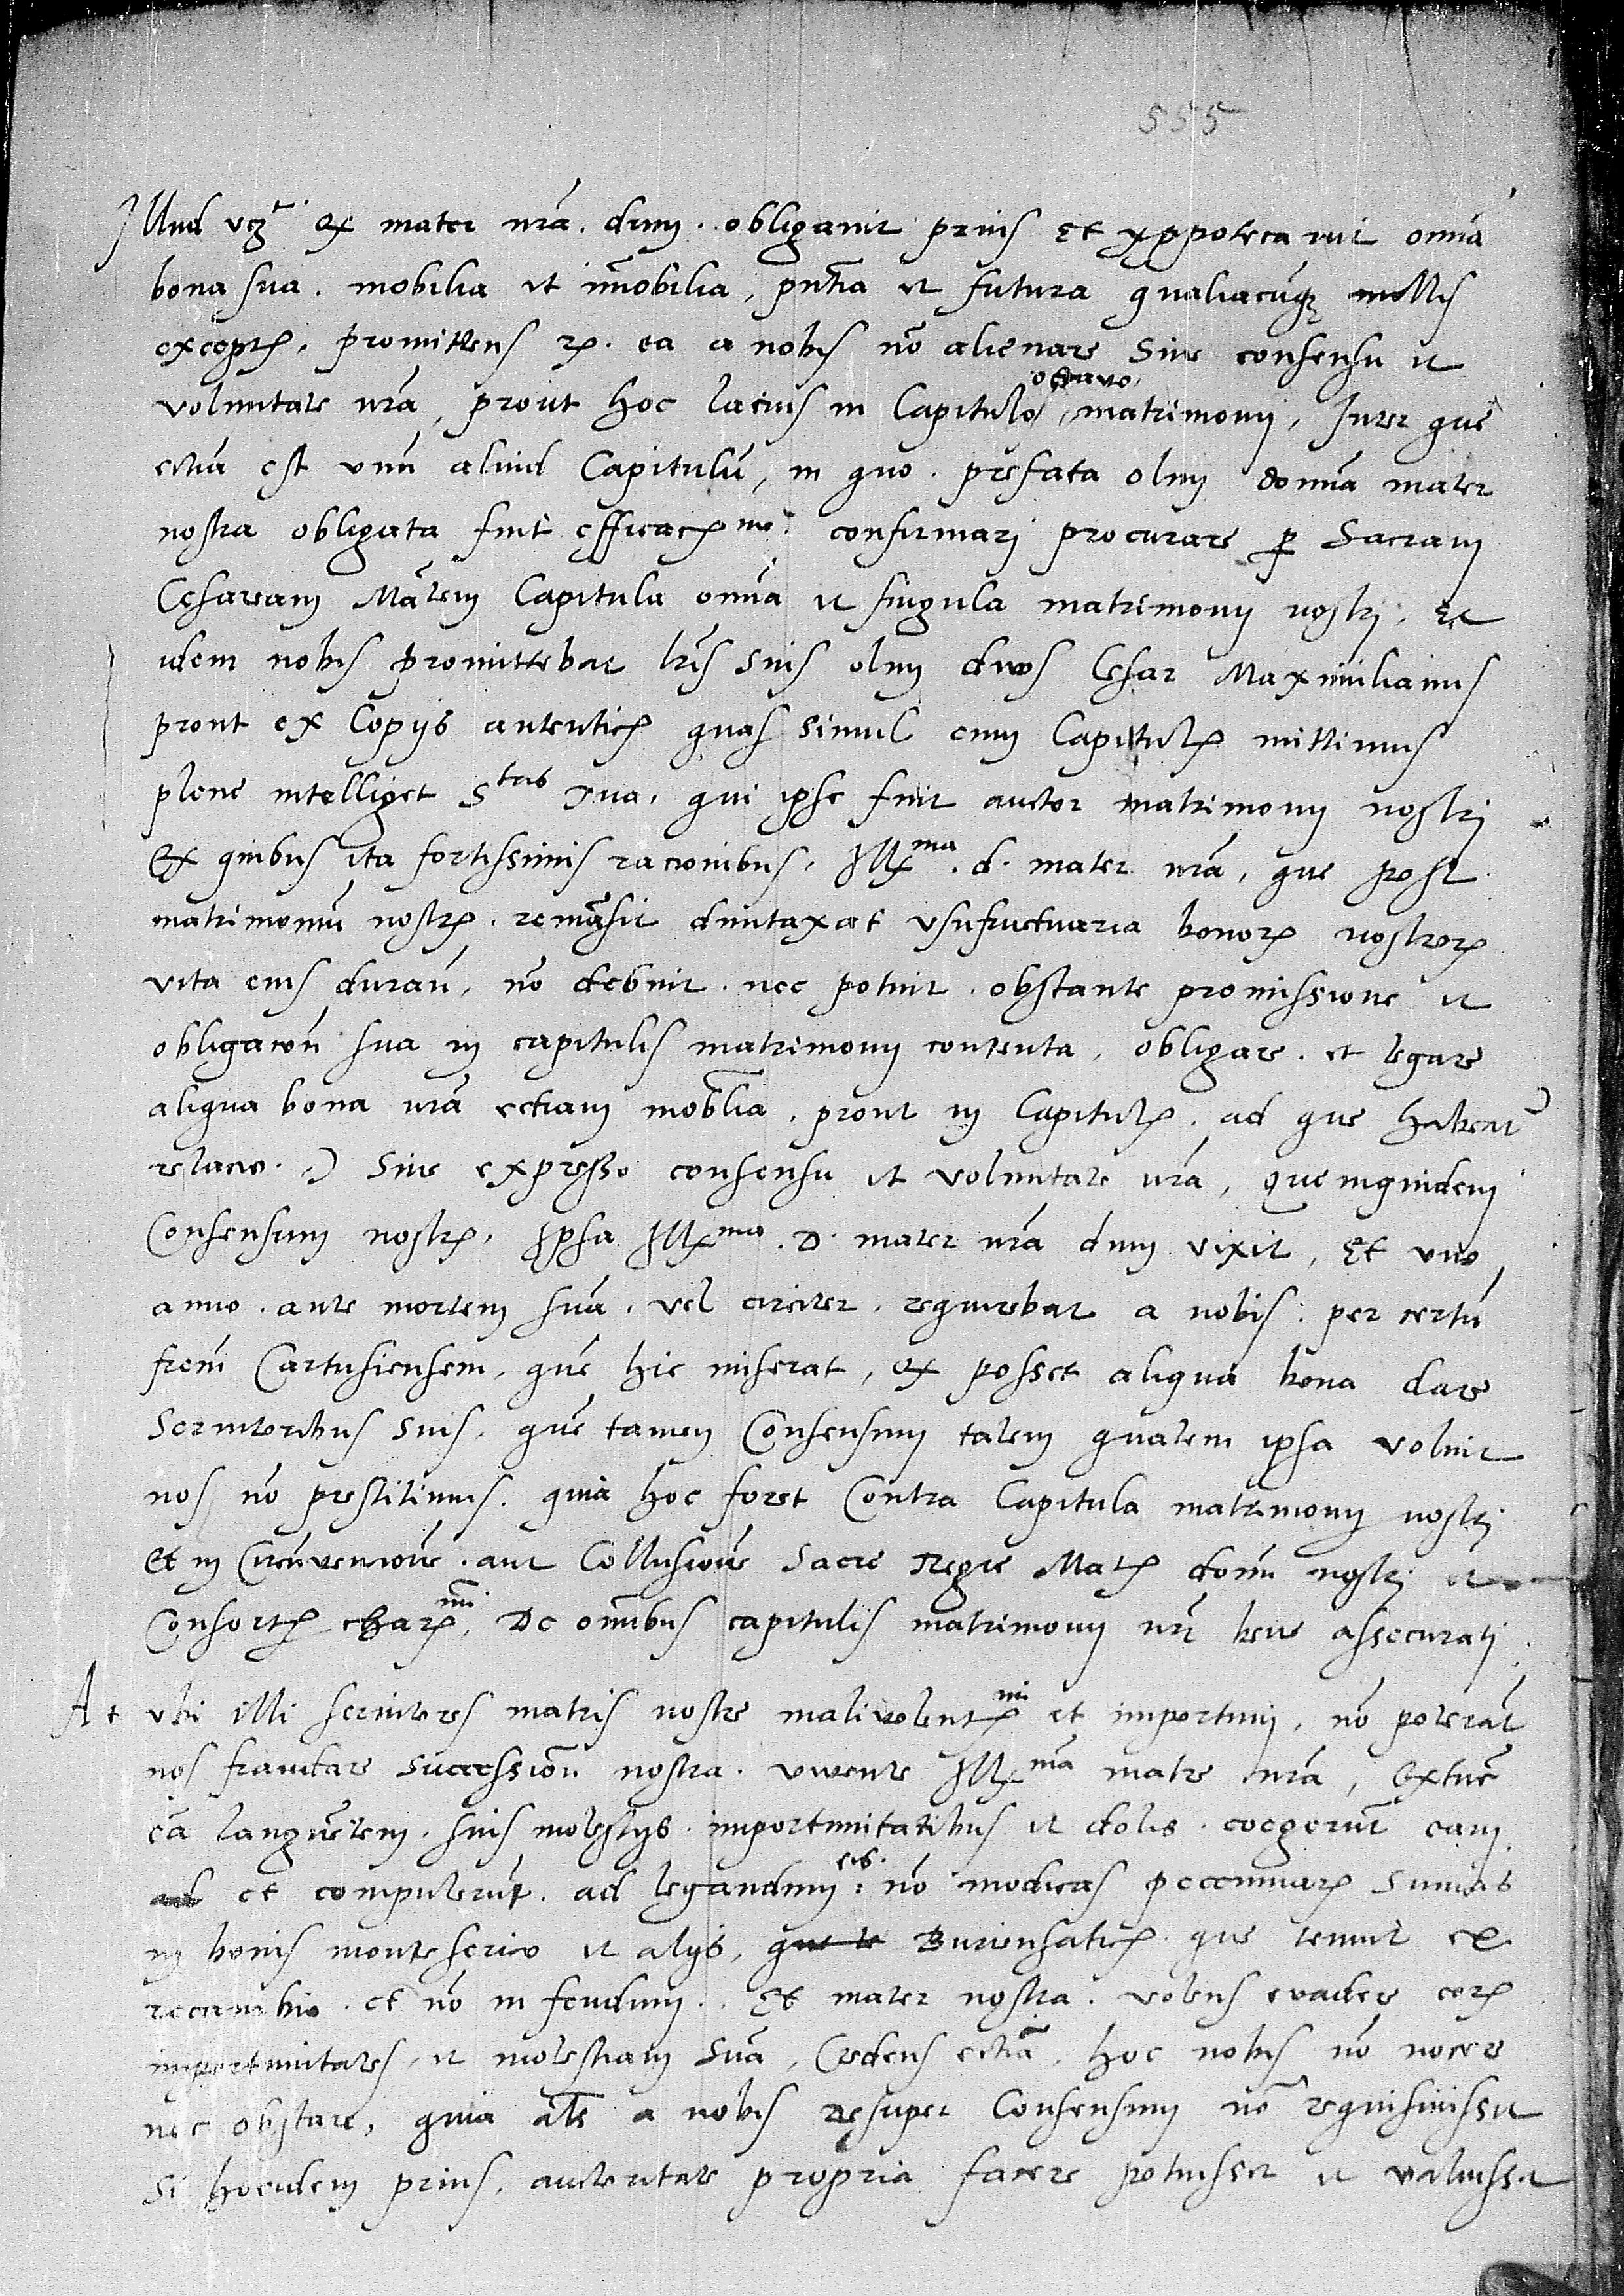 555
Illud vcz ꝙ mater nra. dum. obligavit prius et yppotecavit omnia
bona sua. mobilia et immobilia, pntia et futura qualiacumqz nullis
exceptis, promittens. ea a nobis no alienare sine consensu et
voluntate nra, prout hoc lacius in Capitulo octavo matrimonij, Inter que
eciam est unum aliud Capitulum, in quo. prefata olim domina mater
nostra obligata fuit efficaciter confirmari procurare per Sacram
Cesaream Matem Capitula omnia et singula matrimonij nostri, et
idem nobis promittebat lris suis olim divus Cesar Maximilianus
prout ex Copijs autenticis quas simul cum Capitulis mittimus
plene intelliget Stas Tua, qui ipse fuit auctor matrimonij nostri
Ex quibus ita fortissimis racionibus, Illma. d. mater nra, que post
matrimonium nostrum. remansit dumtaxat usufructuaria bonorum nostrorum
vita eius duran, no debuit. nec potuit. obstante promissione et
obligacion sua in capitulis matrimonij contenta, obligare. et legare
aliqua bona nra eciam mobilia, prout in Capitulis, ad que habeatur
relacio.) Sine expresso consensu et voluntate nra, quemquidem
Consensum nostrum, Ipsa Illma. D. mater nra dum vixit, Et uno
anno. ante mortem suam. vel circiter. requirebat a nobis: per certum
frem Cartusiensem, quem hic miserat, ꝙ posset aliqua bona dare
Servitoribus suis, quem tamen Consensum talem qualem ipsa voluit
nos no prestitimus. quia hoc foret Contra Capitula matrimonij nostri
Et in Circumvencionem. aut Collusionem Sacre Regie Matis domini nostri et
Consortis charmi, De omnibus capitulis matrimonij nri bene assecurati.
At ubi illi servitores matris nostre malivolentissimi et importuni, no poterant
nos fraudare succession nostra. vivente Illma matre nra, Extunc
eam languentem. suis molestijs. importunitatibus et dolis. coegerunt eam
et compulerunt. ad legandum eis. no modicas peccuniarum summas
in bonis monteserico et alijs, Buriensaticis. que tenuit ex
recambio. et no in feudum.. Et mater nostra. volens evadere eorum
importunitates, et molestiam suam, Credens eciam, hoc nobis no nocere
nec obstare, quia als a nobis desuper Consensum no requisivisset
Si hocidem prius, auctoritate propria facere potuisset et valuisset